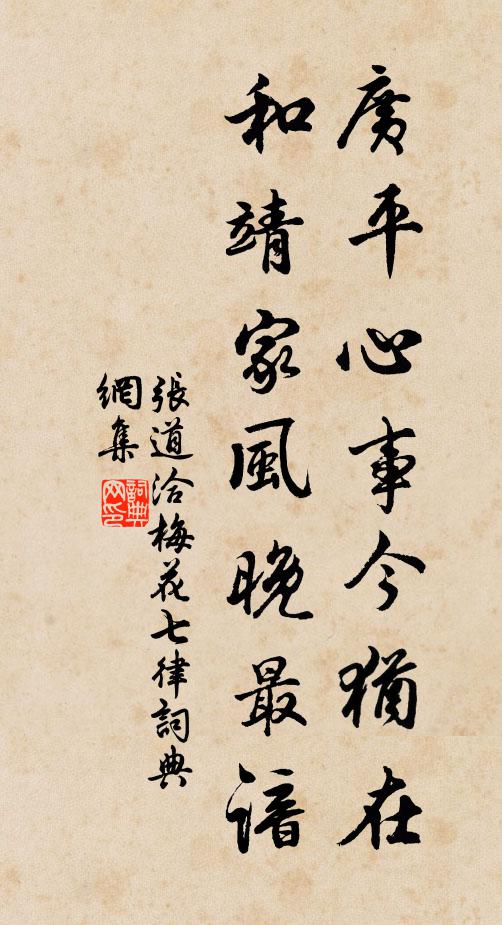 廣平心事今猶在
和靖家風晚最諳
張道洽梅花七律詞典
網集
詞典網印